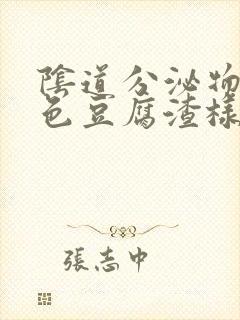 陰道分泌物
色豆腐渣樣
張志中